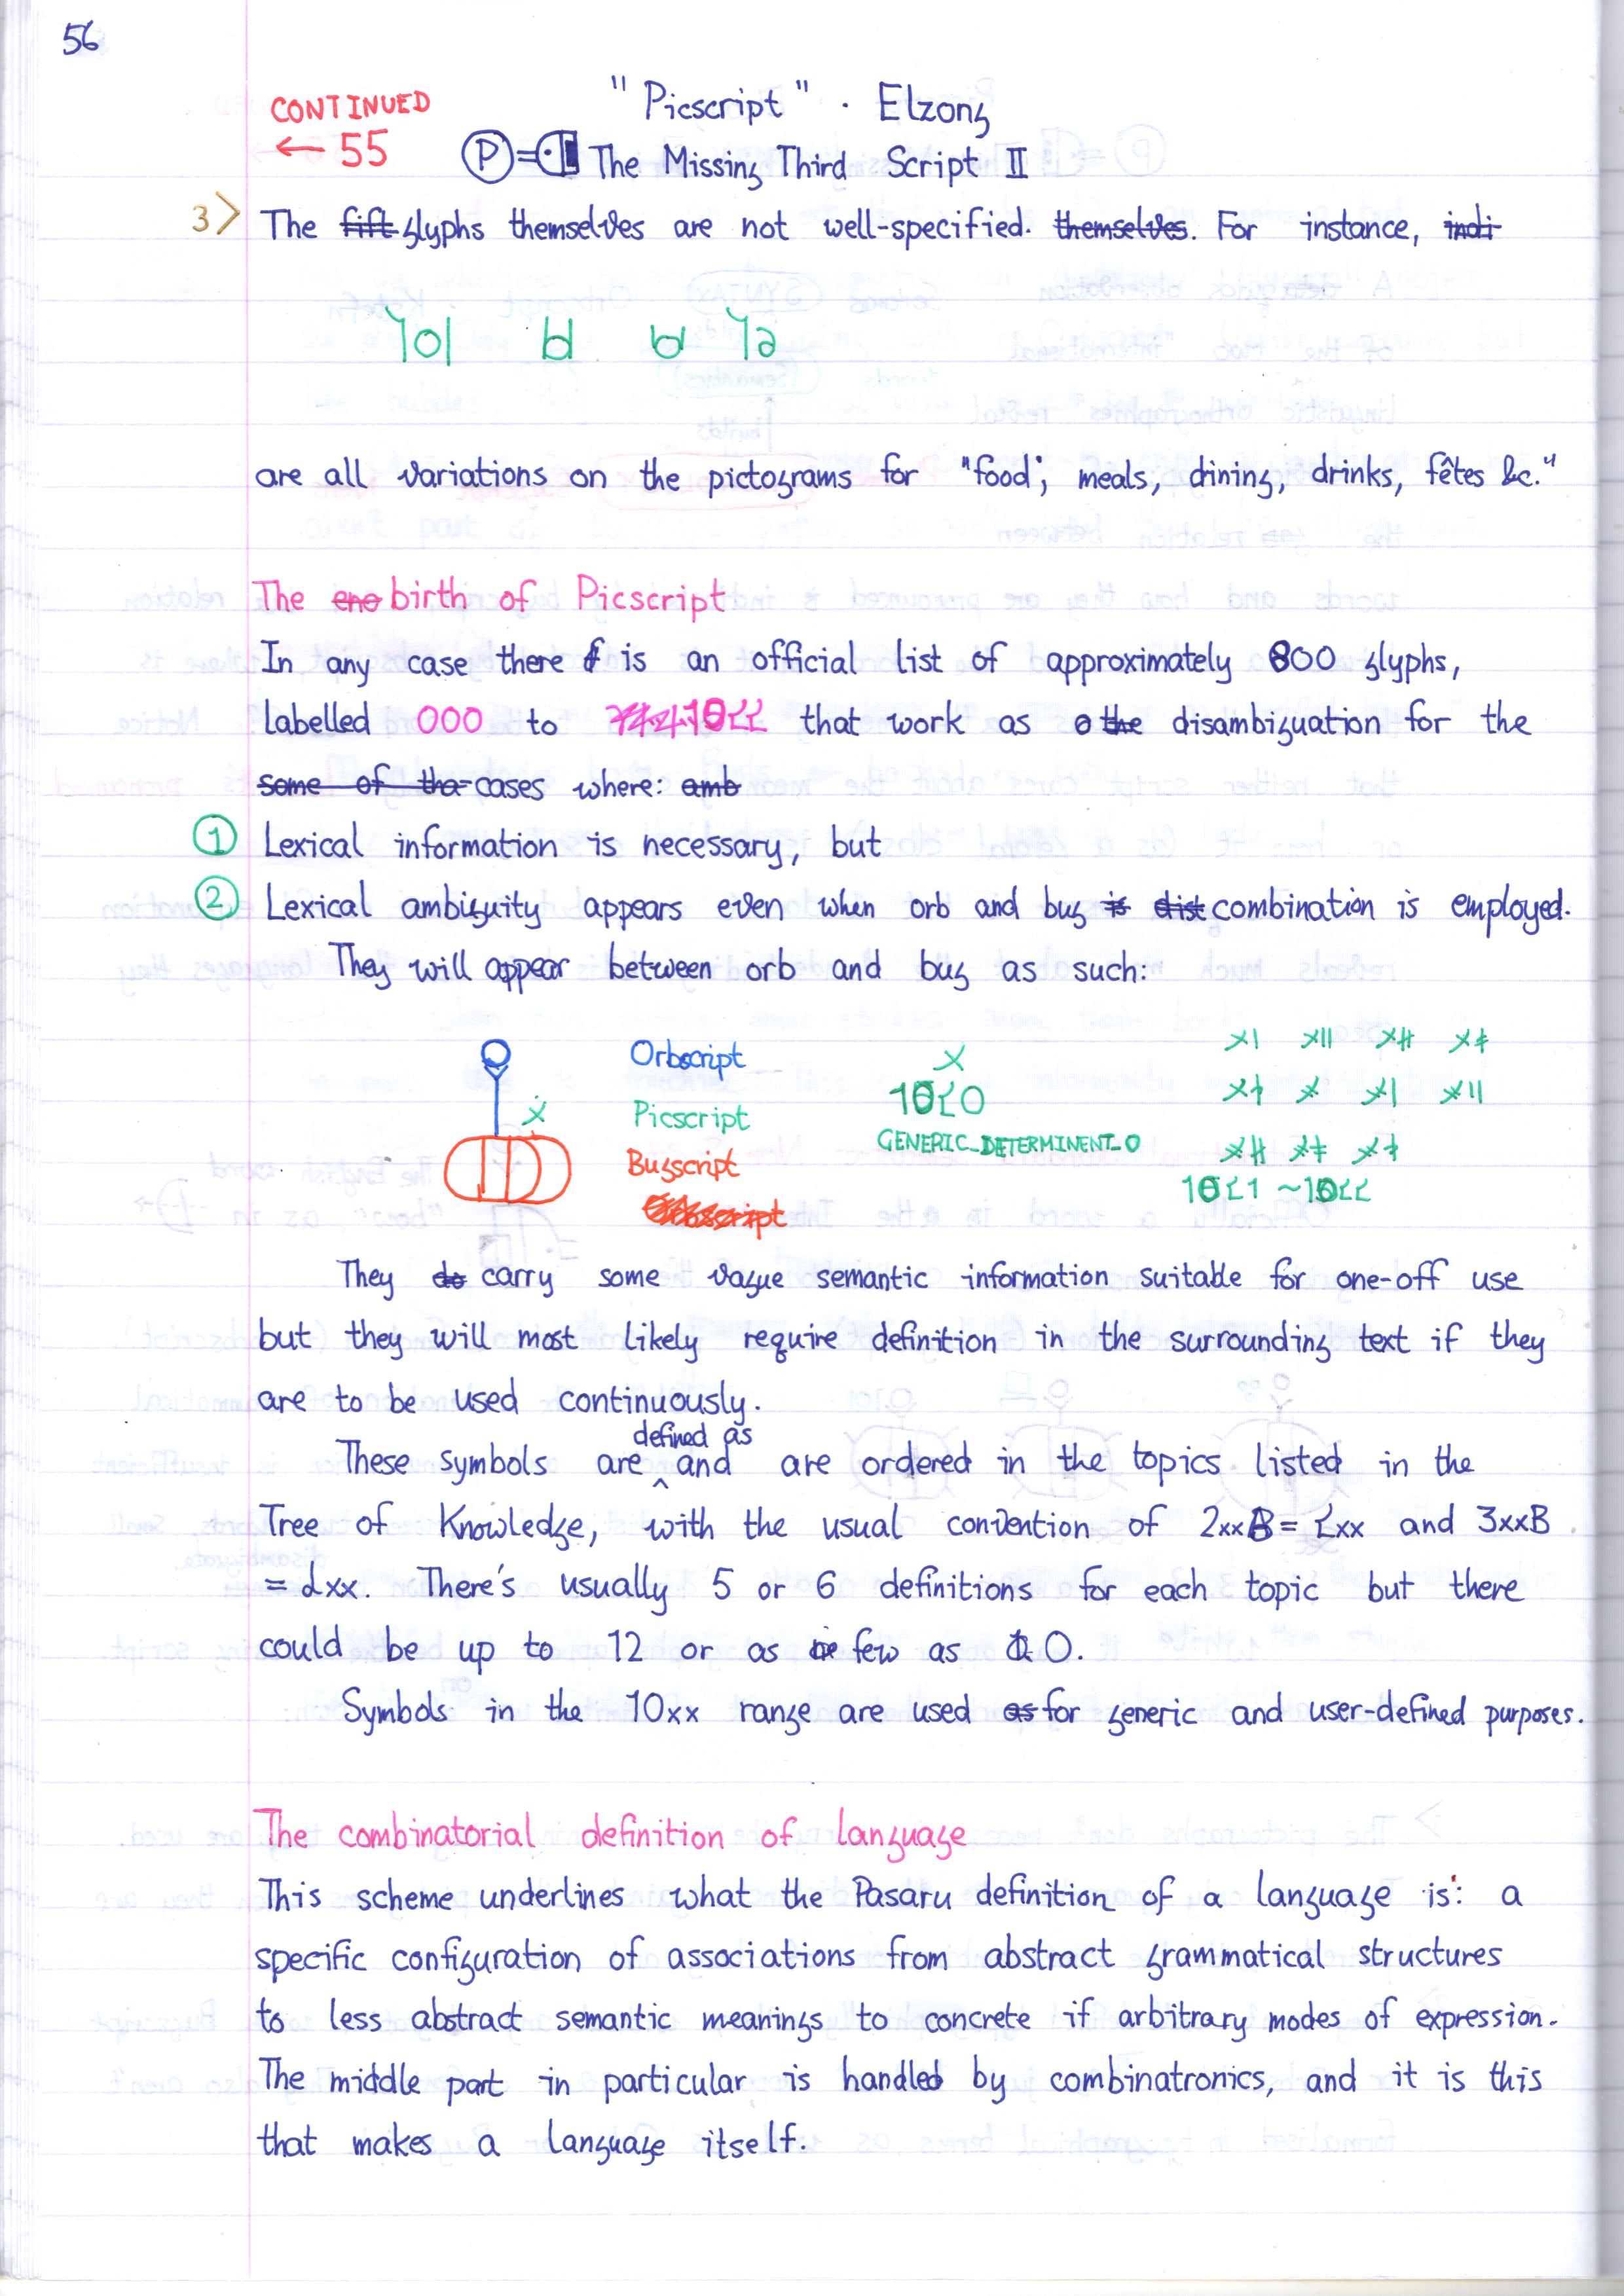 56
CONTINUED
← 55
"Picscript" · Elzong
P = The Missing Third Script II
3> The fift glyphs themselves are not well-specified. themselves. For instance, indi
are all variations on the pictograms for "food", meals, dining, drinks, fêtes &c."
The eno birth of Picscript
In any case there is an official list of approximately 800 glyphs,
labelled 000 to 10ԐԐ that work as o the disambiguation for the
some of tha cases where: amb
1 Lexical information is necessary, but
2 Lexical ambiguity appears even when orb and bug is dist combination is employed.
They will appear between orb and bug as such:
Orbscript
Picscript 10Ԑ0
GENERIC_DETERMINENT_0
Bugscript
10Ԑ1 ~10ԐԐ
Orbscript
They do carry some vague semantic information suitable for one-off use
but they will most likely require definition in the surrounding text if they
are to be used continuously.
defined as
These symbols are ^ and are ordered in the topics listed in the
Tree of Knowledge, with the usual convention of 2xxB = Ԑxx and 3xxB
= dxx. There's usually 5 or 6 definitions for each topic but there
could be up to 12 or as few as 0.
Symbols in the 10xx range are used as for generic and user-defined purposes.
The combinatorial definition of language
This scheme underlines what the Pasaru definition of a language is: a
specific configuration of associations from abstract grammatical structures
to less abstract semantic meanings to concrete if arbitrary modes of expression.
The middle part in particular is handled by combinatronics, and it is this
that makes a language itself.